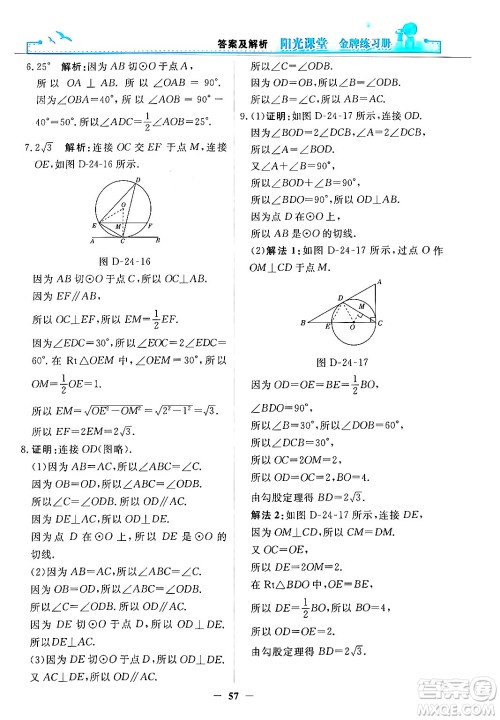 答案及解析 阳光课堂 金牌练习册
6.25° 解析:因为 AB 切⊙O 于点 A,
所以 OA⊥AB. 所以∠OAB=90°.
因为∠OBA=40°,所以∠AOB=90°-
40°=50°.所以∠ADC=1/2∠AOB=25°.
7.2√3 解析:连接 OC 交 EF 于点 M,连接
OE,如图 D-24-16 所示.
D
E M F
A C B
图 D-24-16
因为 AB 切⊙O 于点 C,所以 OC⊥AB.
因为 EF∥AB,所以 OC⊥EF.
所以 EM=FM=1/2EF.
因为∠EDC=30°,所以∠EOC=60°.
所以∠OEM=30°. 在 Rt△OEM 中,所以
OM=1/2OE=1.
所以 EM=√(OE²-OM²)=√(2²-1²)=√3.
所以 EF=2EM=2√3.
8.证明:连接 OD(图略).
(1)因为 AB=AC,所以∠ABC=∠C.
因为 OD=OB,所以∠ABC=∠ODB.
所以∠ODB=∠C. 所以 OD∥AC.
因为 DE⊥AC,所以 OD⊥DE.
因为 D 是⊙O 上一点,所以 DE 是⊙O 的
切线.
(2)因为 AB=AC,所以∠ABC=∠C.
因为 OB=OD,所以∠ABC=∠ODB.
所以∠ODB=∠C. 所以 OD∥AC.
因为 DE 切⊙O 于点 D,所以 OD⊥DE.
所以 DE⊥AC.
(3)因为 DE 切⊙O 于点 D,所以 OD⊥DE.
又 DE⊥AC,所以 OD∥AC.
所以∠C=∠ODB.
因为 OB=OD,所以∠ABC=∠ODB.
所以∠ABC=∠C.
所以 AB=AC.
9.(1)证明:如图 D-24-17 所示,连接 OD.
所以∠BOD=2∠DCB.
因为∠A=2∠DCB,所以∠A=∠BOD.
又∠A+∠B=90°,
所以∠BOD+∠B=90°.
所以∠BDO=90°.
所以 AB 是⊙O 的切线.
(2)解法 1:如图 D-24-17 所示,过点 O 作
OM⊥CD 于点 M.
A
D M
B E O C
图 D-24-17
因为 OD=OE=BE=1/2BO,
∠BDO=90°,
所以∠B=30°. 所以∠DOB=60°.
所以∠DCB=30°.
所以 OD=OC=2OM=2.
所以 OD=2,BO=4.
由勾股定理得 BD=2√3.
解法 2:如图 D-24-17 所示,连接 DE.
又 OM⊥CD,所以 DM=CM.
又 OC=OE,
所以 DE=2OM=2.
在 Rt△BDO 中,因为 OE=BE,
所以 DE=1/2BO.
所以 BO=4. 所以 OD=OE=2.
由勾股定理得 BD=2√3.
57